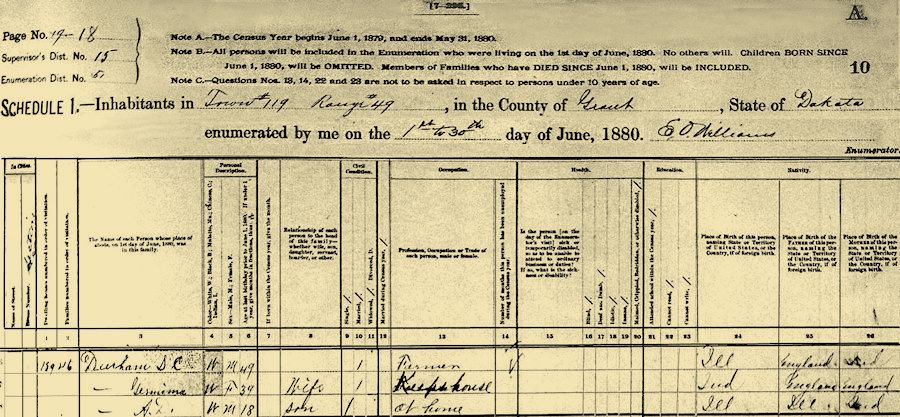 [7-296.]
A.
Page No. 19-18
Supervisor's Dist. No. 15
Enumeration Dist. No.
Note A.—The Census Year begins June 1, 1879, and ends May 31, 1880.
Note B.—All persons will be included in the Enumeration who were living on the 1st day of June, 1880. No others will. Children BORN SINCE
June 1, 1880, will be OMITTED. Members of Families who have DIED SINCE June 1, 1880, will be INCLUDED.
Note C.—Questions Nos. 13, 14, 22 and 23 are not to be asked in respect to persons under 10 years of age.
10
SCHEDULE 1.—Inhabitants in Town #119 Range #49, in the County of Grant, State of Dakota
enumerated by me on the 1st to 30th day of June, 1880. E O Williams
Enumerator.
In Cities. Personal Description. Civil Condition. Occupation. Health. Education. Nativity.
Name of Street.
House Number.
Dwelling houses numbered in order of visitation.
Families numbered in order of visitation.
The Name of each Person whose place of abode, on 1st day of June, 1880, was in this family.
Color—White, W.; Black, B.; Mulatto, Mu.; Chinese, C.; Indian, I.
Sex—Male, M.; Female, F.
Age at last birthday prior to June 1, 1880. If under 1 year, give months in fractions, thus:
If born within the Census year, give the month.
Relationship of each person to the head of this family—whether wife, son, daughter, servant, boarder, or other.
Single, /.
Married, /.
Widowed, /. Divorced, D.
Married during Census year, /.
Profession, Occupation or Trade of each person, male or female.
Number of months this person has been unemployed during the Census year.
Is the person [on the day of the Enumerator's visit] sick or temporarily disabled, so as to be unable to attend to ordinary business or duties? If so, what is the sickness or disability?
Blind, /.
Deaf and Dumb, /.
Idiotic, /.
Insane, /.
Maimed, Crippled, Bedridden, or otherwise disabled, /.
Attended school within the Census year, /.
Cannot read, /.
Cannot write, /.
Place of Birth of this person, naming State or Territory of United States, or the Country, if of foreign birth.
Place of Birth of the Father of this person, naming the State or Territory of United States, or the Country, if of foreign birth.
Place of Birth of the Mother of this person, naming the State or Territory of United States, or the Country, if of foreign birth.
1 2 3 4 5 6 7 8 9 10 11 12 13 14 15 16 17 18 19 20 21 22 23 24 25 26
46 Durham S C W M 49 1 Farmer Ill England
— Jemima W F 39 Wife 1 Keeps house Ind England England
— W M 18 Son 1 at home Ill Ill Ind